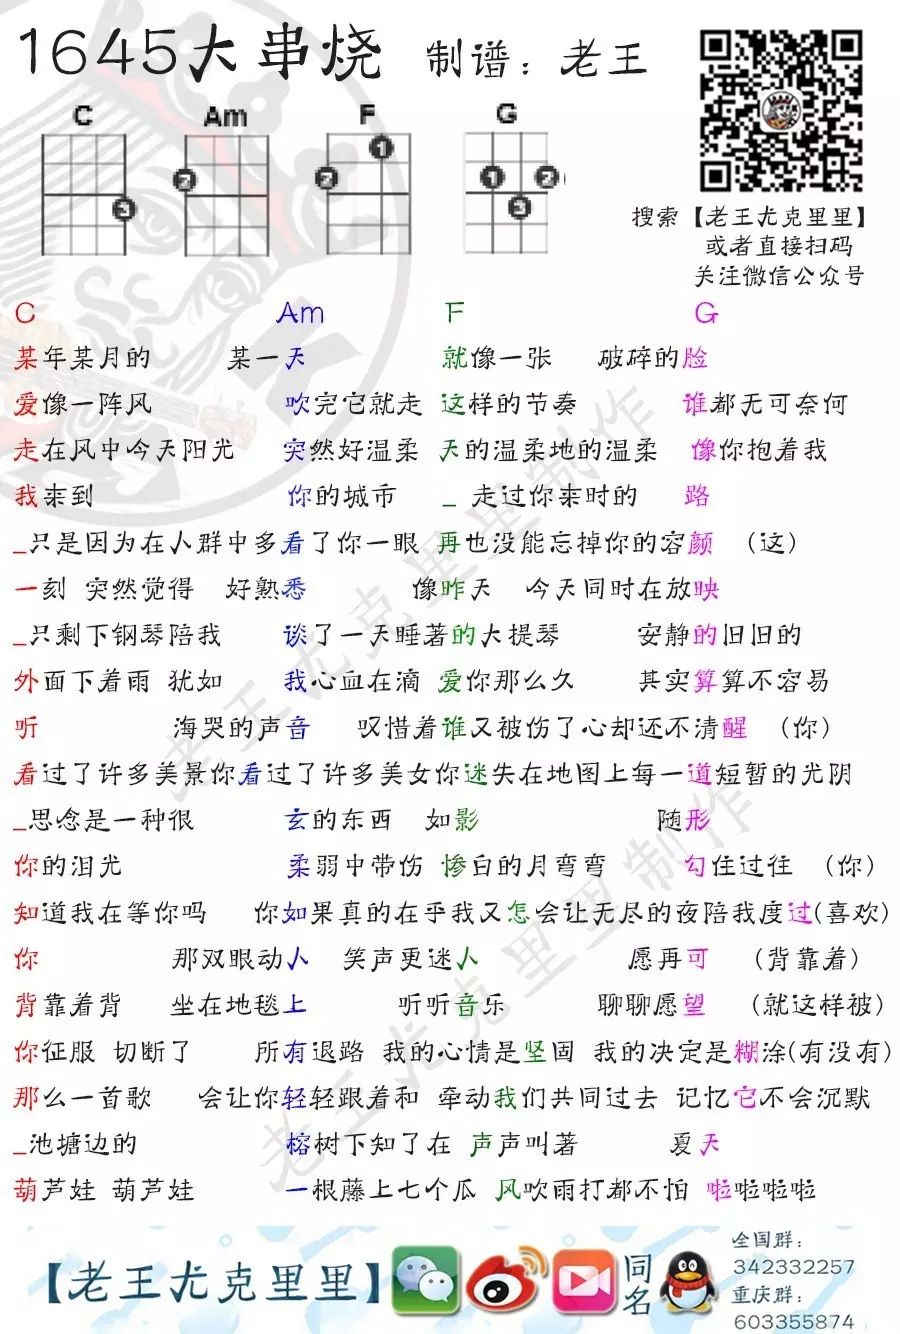 1645大串烧 制谱：老王
C Am F G
2 1
3 2 2 1 2
3
搜索【老王尤克里里】
或者直接扫码
关注微信公众号
C Am F G
某年某月的 某一天 就像一张 破碎的脸
爱像一阵风 吹完它就走 这样的节奏 谁都无可奈何
走在风中今天阳光 突然好温柔 天的温柔地的温柔 像你抱着我
我来到 你的城市 _ 走过你来时的 路
_只是因为在人群中多看了你一眼 再也没能忘掉你的容颜 （这）
一刻 突然觉得 好熟悉 像昨天 今天同时在放映
_只剩下钢琴陪我 谈了一天睡著的大提琴 安静的旧旧的
外面下着雨 犹如 我心血在滴 爱你那么久 其实算算不容易
听 海哭的声音 叹惜着谁又被伤了心却还不清醒 （你）
看过了许多美景你看过了许多美女你迷失在地图上每一道短暂的光阴
_思念是一种很 玄的东西 如影 随形
你的泪光 柔弱中带伤 惨白的月弯弯 勾住过往 （你）
知道我在等你吗 你如果真的在乎我又怎会让无尽的夜陪我度过(喜欢)
你 那双眼动人 笑声更迷人 愿再可 （背靠着）
背靠着背 坐在地毯上 听听音乐 聊聊愿望 （就这样被）
你征服 切断了 所有退路 我的心情是坚固 我的决定是糊涂(有没有)
那么一首歌 会让你轻轻跟着和 牵动我们共同过去 记忆它不会沉默
_池塘边的 榕树下知了在 声声叫著 夏天
葫芦娃 葫芦娃 一根藤上七个瓜 风吹雨打都不怕 啦啦啦啦
老王尤克里里制作
老王尤克里里制作
【老王尤克里里】
同名
全国群：
342332257
重庆群：
603355874